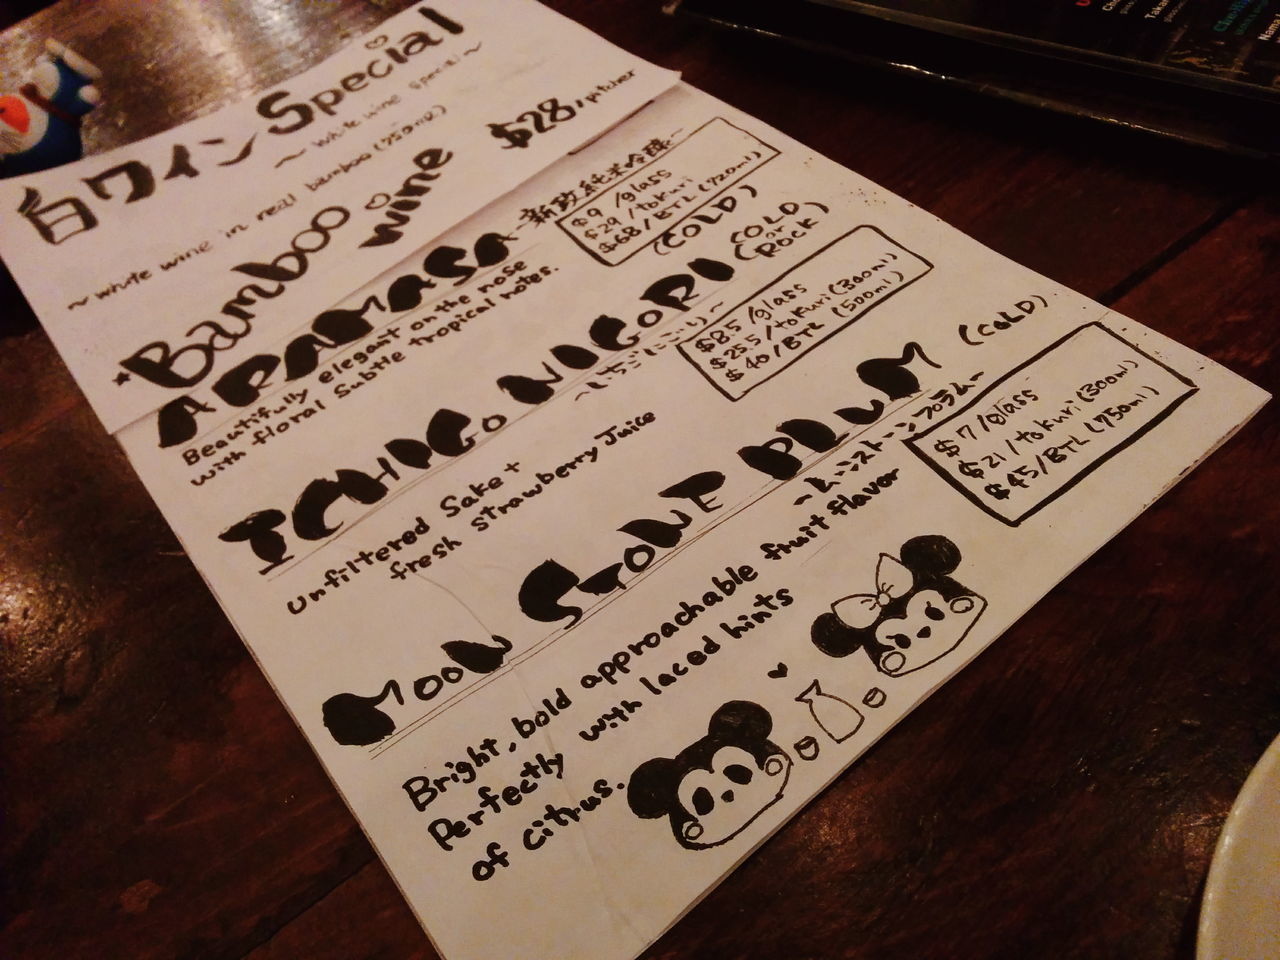 白ワイン Special
~ white wine special ~
~ white wine in real bamboo (750ml)
★Bamboo wine
$28/pitcher
ARAMASA
-新政 純米吟醸-
(COLD)
$9 /glass
$29 /tokuri
$68/BTL (720ml)
Beautifully elegant on the nose
with floral subtle tropical notes.
ICHIGO NIGORI (COLD or ROCK)
~いちごにごり~
$8.5 /glass
$25.5 /tokuri (300ml)
$40/BTL (500ml)
Unfiltered Sake +
fresh strawberry Juice
MOON STONE PLUM (COLD)
-ムーンストーンプラム-
$7 /glass
$21 /tokuri (300ml)
$45/BTL (750ml)
Bright, bold approachable fruit flavor
Perfectly with laced hints
of citrus.